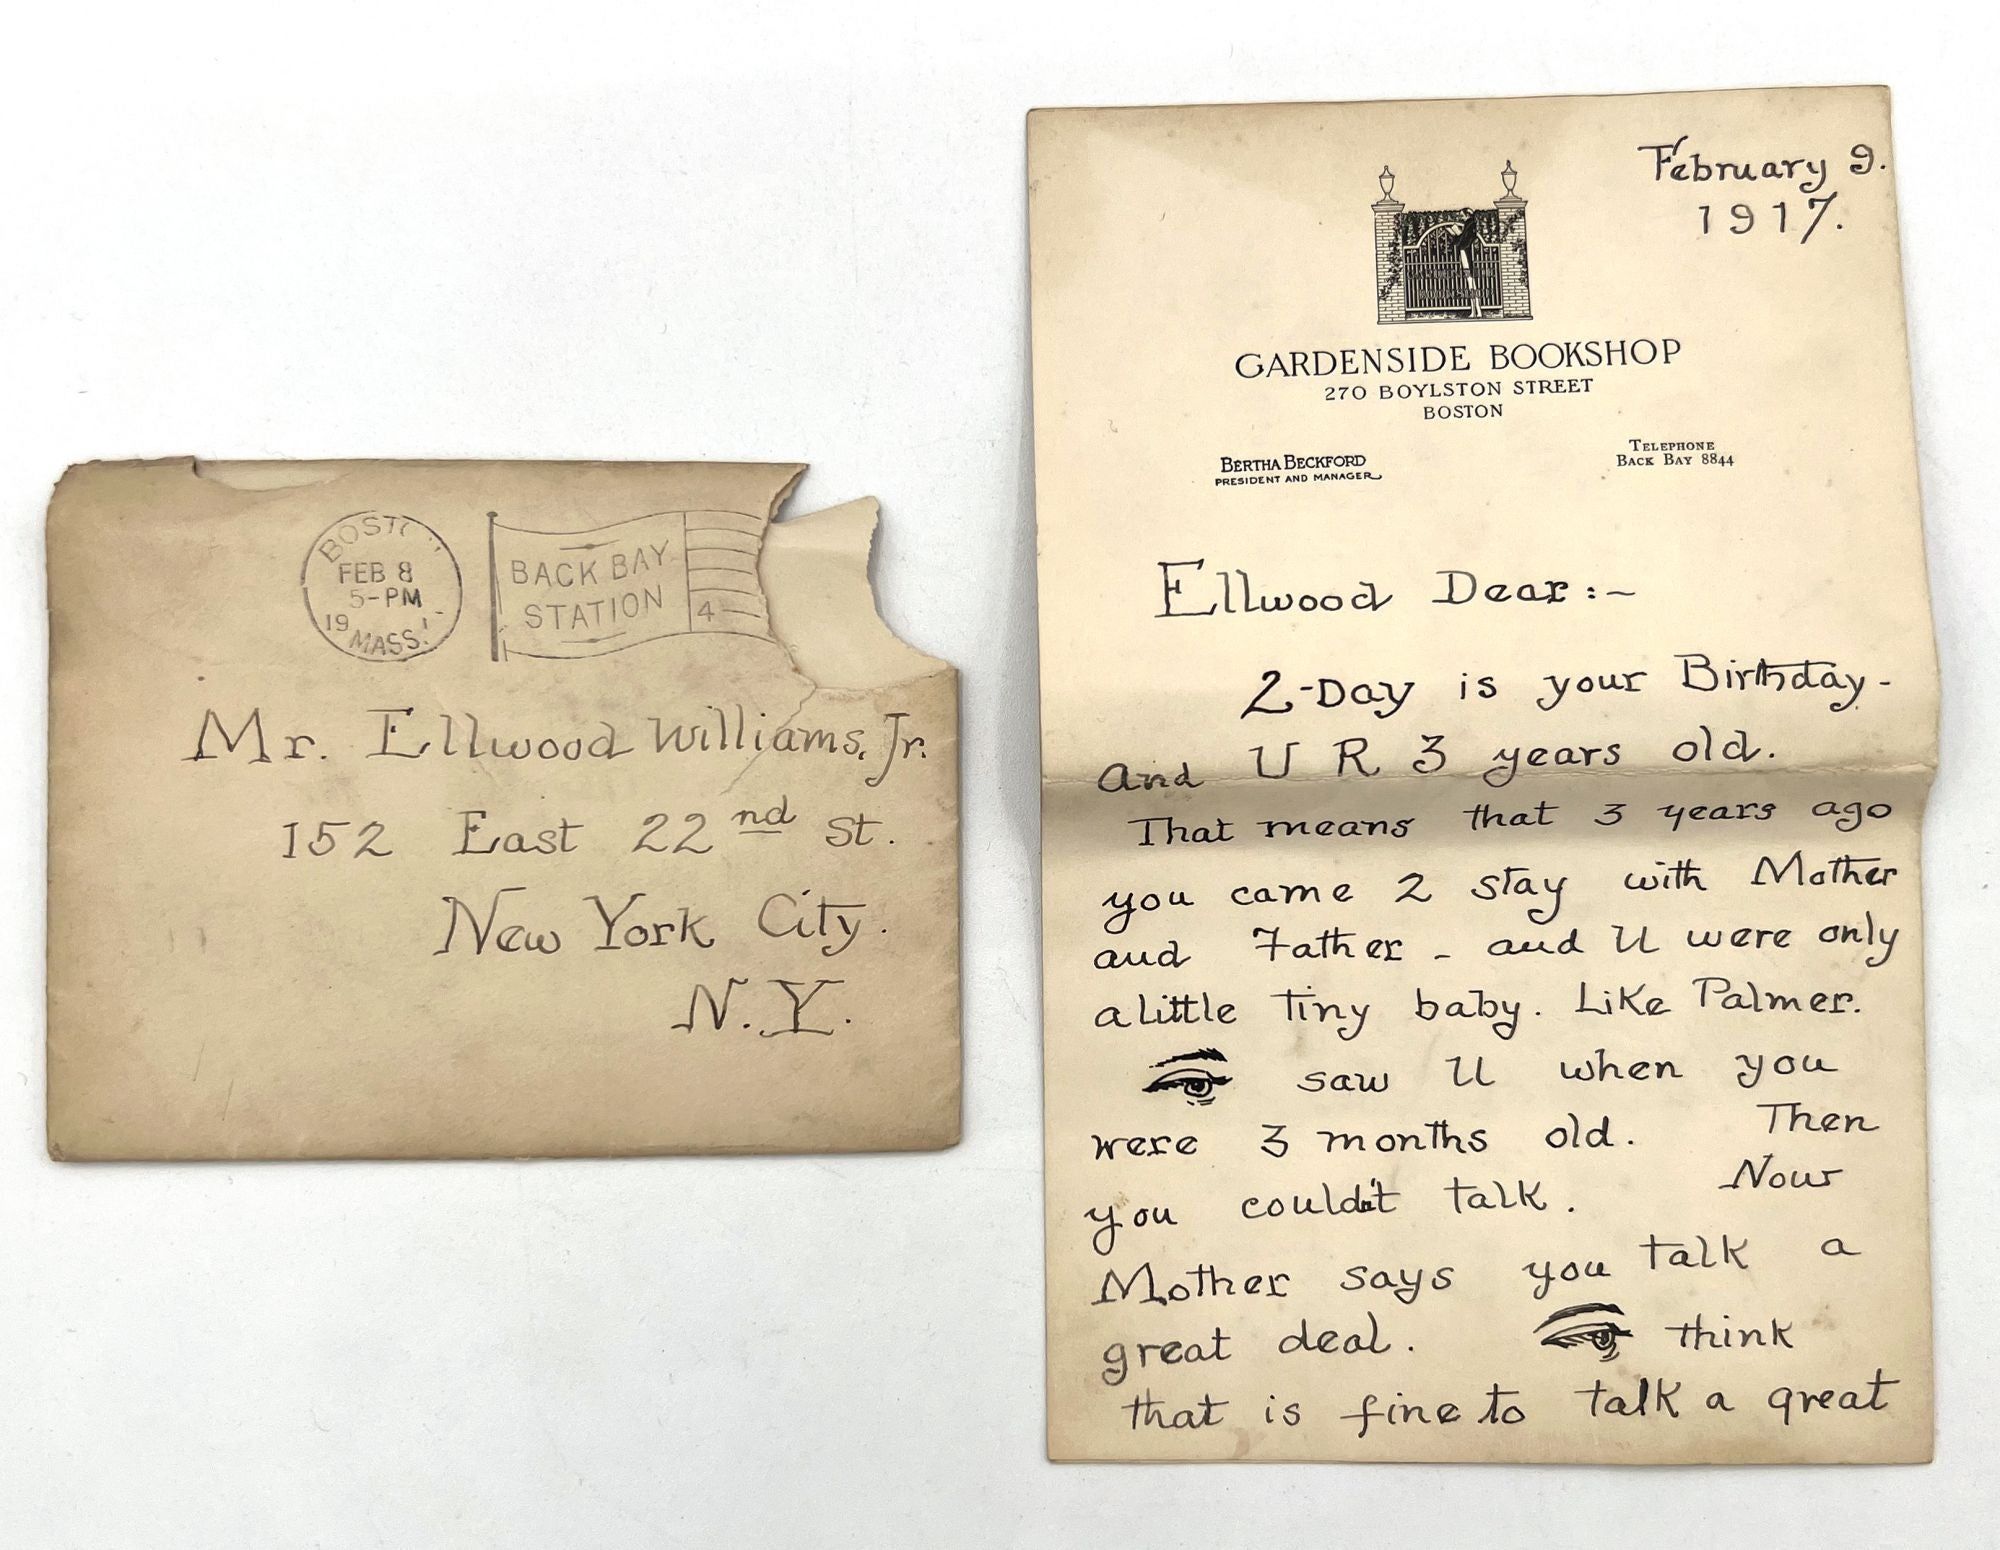 BOSTO
FEB 8
5-PM
19
MASS.
BACK BAY
STATION
4
Mr. Ellwood Williams, Jr.
152 East 22nd St.
New York City.
N.Y.
February 9.
1917.
GARDENSIDE BOOKSHOP
270 BOYLSTON STREET
BOSTON
BERTHA BECKFORD
PRESIDENT AND MANAGER
TELEPHONE
BACK BAY 8844
Ellwood Dear:-
2-Day is your Birthday-
And U R 3 years old.
That means that 3 years ago
you came 2 stay with Mother
and Father - and U were only
a little tiny baby. Like Palmer.
saw U when you
were 3 months old. Then
you couldn't talk. Now
Mother says you talk a
great deal. think
that is fine to talk a great